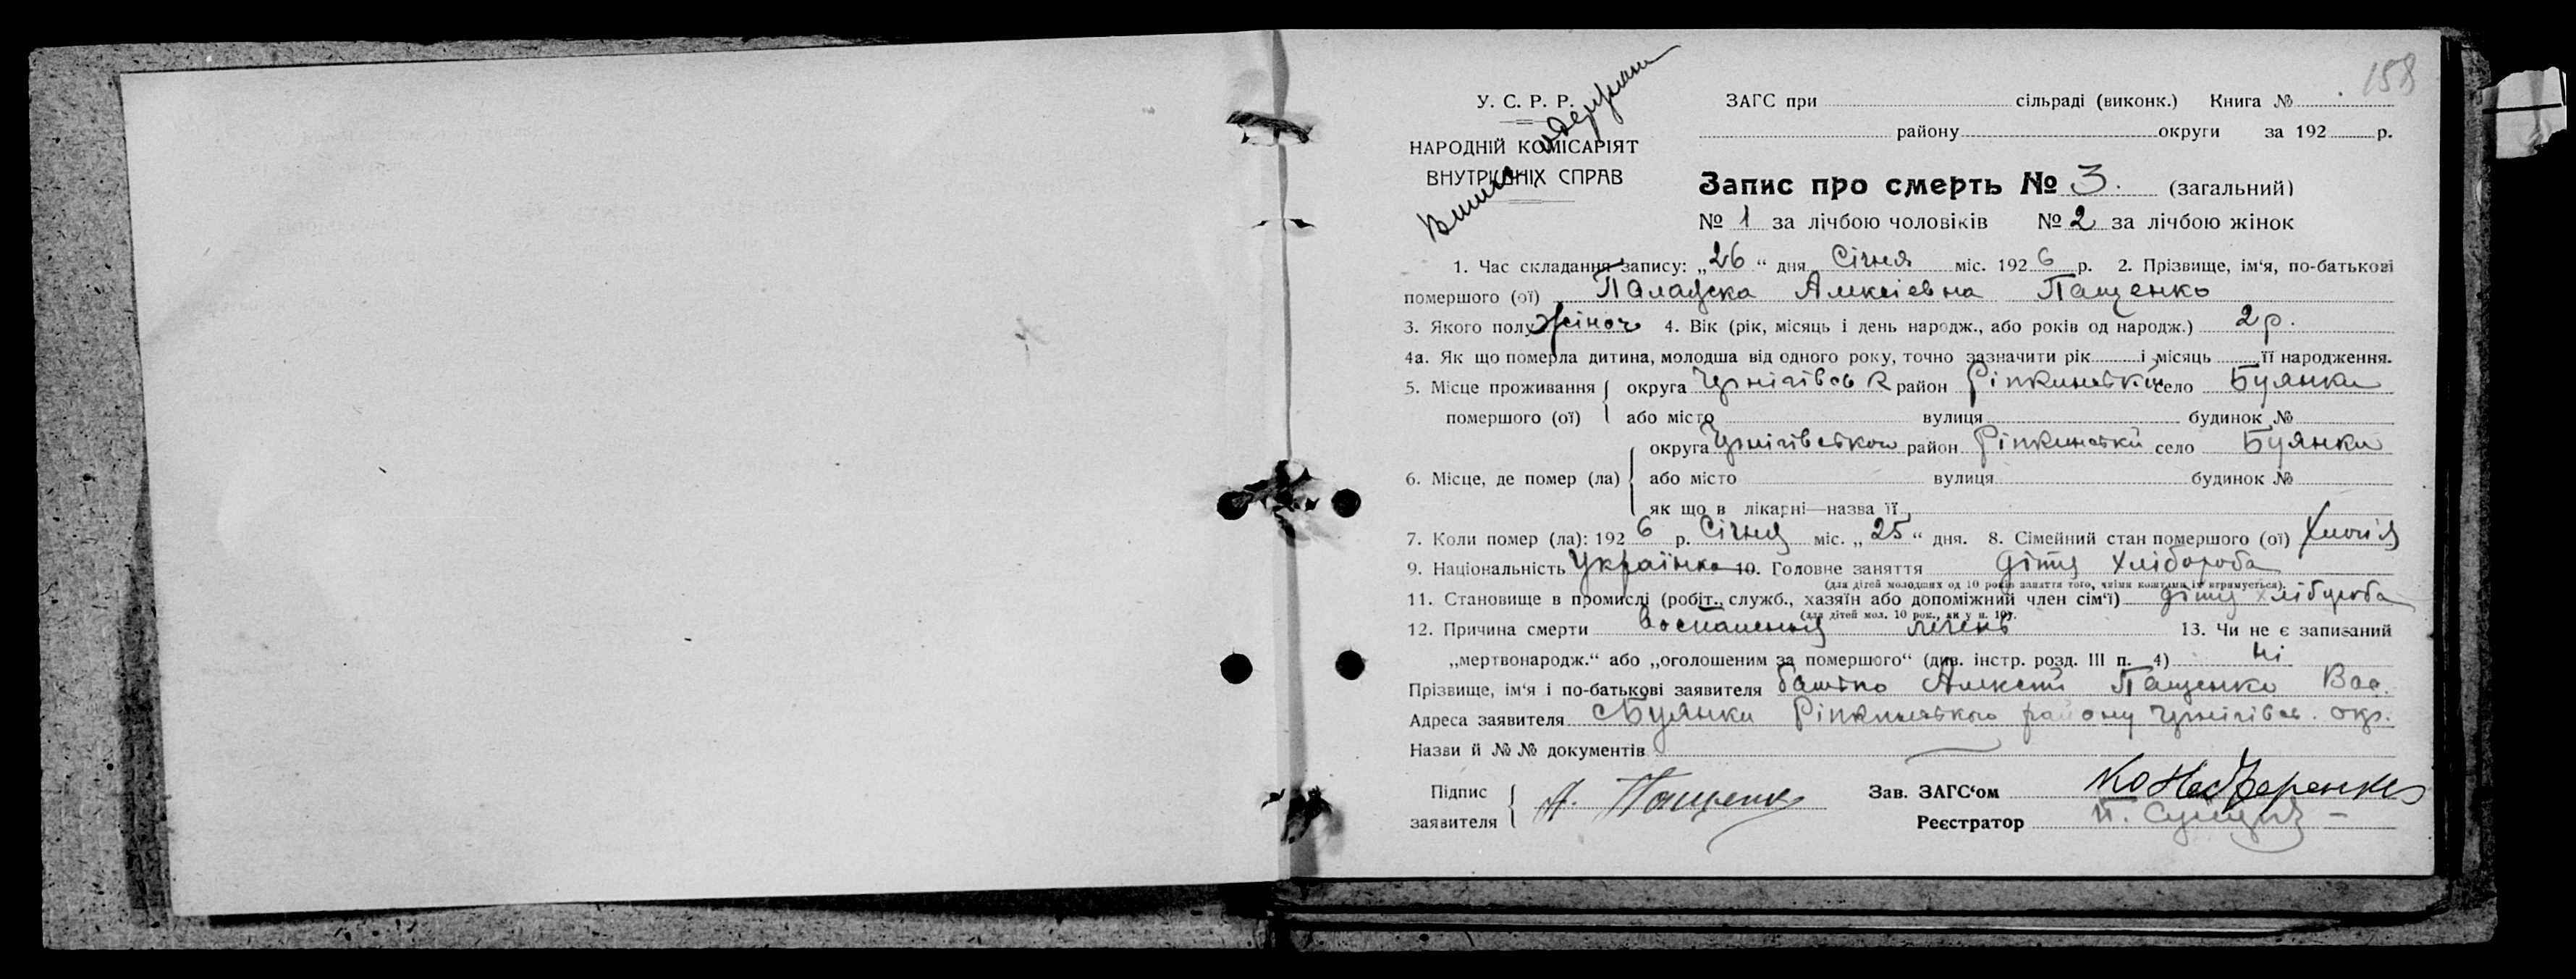 158
У. С. Р. Р.
НАРОДНІЙ КОМІСАРІЯТ
ВНУТРІШНІХ СПРАВ
ЗАГС при сільраді (виконк.) Книга №
району округи за 192 р.
Запис про смерть № 3. (загальний)
№ 1 за лічбою чоловіків № 2 за лічбою жінок
1. Час складання запису: „26“ дня Січня міс. 1926 р. 2. Прізвище, ім‘я, по-батькові
помершого (ої) Палажка Алексіевна Пащенко
3. Якого полу жіноч 4. Вік (рік, місяць і день народж., або років од народж.) 2 р.
4а. Як що померла дитина, молодша від одного року, точно зазначити рік і місяць її народження.
5. Місце проживання округа Чернігівськ район Ріпкинський село Буянки
помершого (ої) або місто вулиця будинок №
округа Чернігівською район Ріпкинський село Буянки
6. Місце, де помер (ла) або місто вулиця будинок №
як що в лікарні—назва її
7. Коли помер (ла): 1926 р. Січня міс. „25“ дня. 8. Сімейний стан помершого (ої)
9. Національність Українка 10. Головне заняття дітя хлібороба
(для дітей молодших од 10 років заняття того, чиїми коштами їх втримується).
11. Становище в промислі (робіт., служб., хазяїн або допоміжний член сім‘ї) дітя хлібороба
(для дітей мол. 10 рок., як у п. 10).
12. Причина смерти воспаления 13. Чи не є записаний
„мертвонародж.“ або „оголошеним за помершого“ (див. інстр. розд. III п. 4) ні
Прізвище, ім‘я і по-батькові заявителя батько Алексей Пащенко Вас.
Адреса заявителя с Буянки Ріпкинського району Чернігівсь. окр.
Назви й №№ документів
Підпис заявителя А. Пащенко Зав. ЗАГС‘ом
Реєстратор